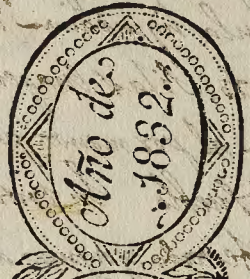 Año de
1832.